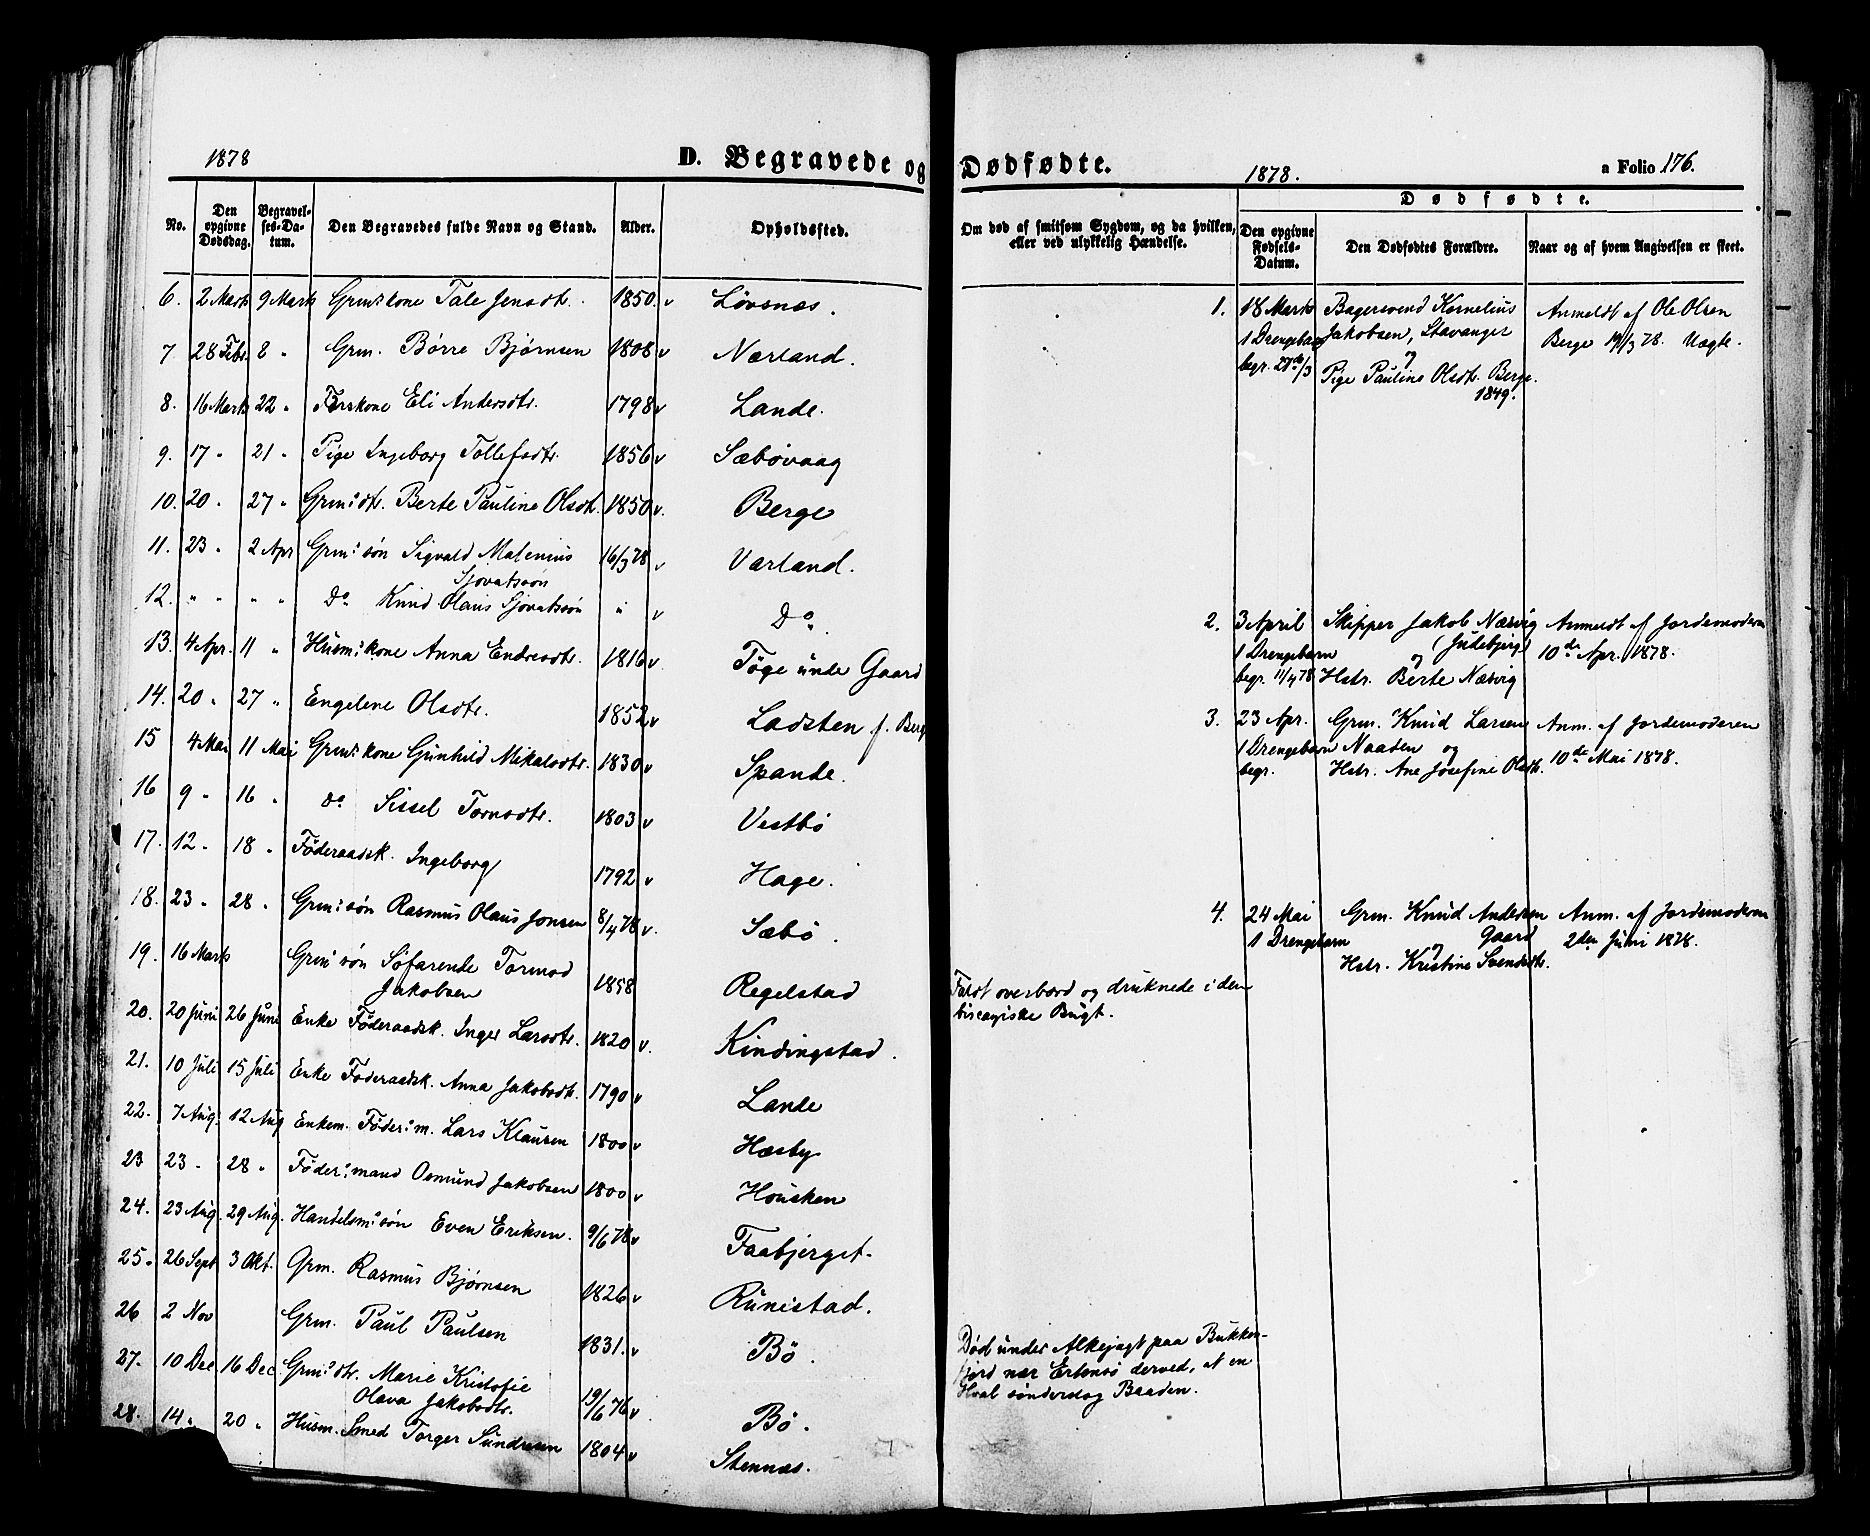 1878
D. Begravede og Dødfødte.
1878.
a Folio 176.
No.
Den opgivne Dødsdag.
Begravelses-Datum.
Den Begravedes fulde Navn og Stand.
Alder.
Opholdssted.
Om død af smitsom Sygdom, og da hvilken, eller ved ulykkelig Hændelse.
Dødfødte.
Den opgivne Fødsels-Datum.
Den Dødfødtes Forældre.
Naar og af hvem Angivelsen er skeet.
6. 2 Marts 9 Marts Grm:kone Tale Jensdtr. 1850. v Løvsnæs.
7 28 Febr. 8 " Grm. Børre Bjørnsen 1808 v Nærland.
8. 16 Marts 22 " Eli Andersdtr. 1798 v Lande.
9. 17 " 21 " Pige Ingeborg Tollefsdtr. 1856 v Sæbøvaag
10. 20 " 27 " Grm:dtr. Berte Pauline Olsdtr. 1850 v. Berge
11. 23 " 2 Apr Grm:søn Sigvald Matenius 16/3 78 v Varland.
Sjovatsøn
12. " " " " Do Knud Olaus Sjovatsøn " v Do.
13. 4 Apr. 11 " Husm:kone Anna Endresdtr. 1816 v. Tøge unde Gaard
14. 20 " 27 " Engelene Olsdtr. 1852 v Ladsten p. Berg
15 4 Mai 11 Mai Grm:kone Gunhild Mikalsdtr. 1830 v Spande.
16 9 " 16 " do Sissel Tormodtr. 1803 v Vestbø
17. 12 " 18 " Føderaadsk. Ingeborg 1792 v Hage.
18. 23 " 28 " Grm:søn Rasmus Olaus Jonsen 8/4 78 v. Sæbø.
19. 16 Marts Grm:søn Søfarende Tormod
Jakobsen 1858 Regelstad Faldt overbord og druknede i den
biscayiske Bugt.
20. 20 Juni 26 Juni Enke Føderaadsk. Inger Larsdtr. 1820 v. Kindingstad.
21. 10 Juli 15 Juli Enke Føderaadsk. Anna Jakobsdtr. 1790 v Lande
22. 7 Aug. 12 Aug Enkem. Føder:m. Lars Klausen 1800 v Hæsby
23 23 " 28 " Føder:mand Osmund Jakobsen 1800 v Housken
24. 23 Aug. 29 Aug. Handelsm:søn Even Eriksen. 9/6 78 v Faabjerget.
25. 26 Sept 3 Okt. Grm. Rasmus Bjørnsen 1826 v Runistad.
26 2 Nov Grm. Paul Paulsen 1831. v Bø. Død under Alkejagt paa Bukken-
fjord nær Ertensø derved, at en
Hval sønderslog Baaden.
27. 10 Dec 16 Dec Grm:dtr. Marie Kristofie
Olava Jakobsdtr. 19/6 76 v Bø.
28. 14 " 20 " Husm. Smed Torger Sundresen 1804 v Stennæs.
1. 18 Marts Bagersvend Kornelius Anmeldt af Ole Olsen
1 Drengebarn Jakobsen, Stavanger Berge 19/3 78. Uægte.
begr. 27de/3 og
Pige Pauline Olsdtr. Berge.
1849.
2. 3 April Skipper Jakob Næsvig Anmeldt af Jordemoderen
1 Drengebarn og (Judebjerg) 10de Apr. 1878.
begr. 11/4 78 Hstr. Berte Næsvig
3. 23 Apr. Grm. Knud Larsen Anm. af Jordemoderen
1 Drengebarn Naaden og 10de Mai 1878.
begr. Hstr. Ane Josefine Olsdtr.
4. 24 Mai Grm. Knud Andersen Anm. af Jordemoderen
1 Drengebarn og Gaard 2den Juni 1878.
Hstr. Kristine Svendsdtr.